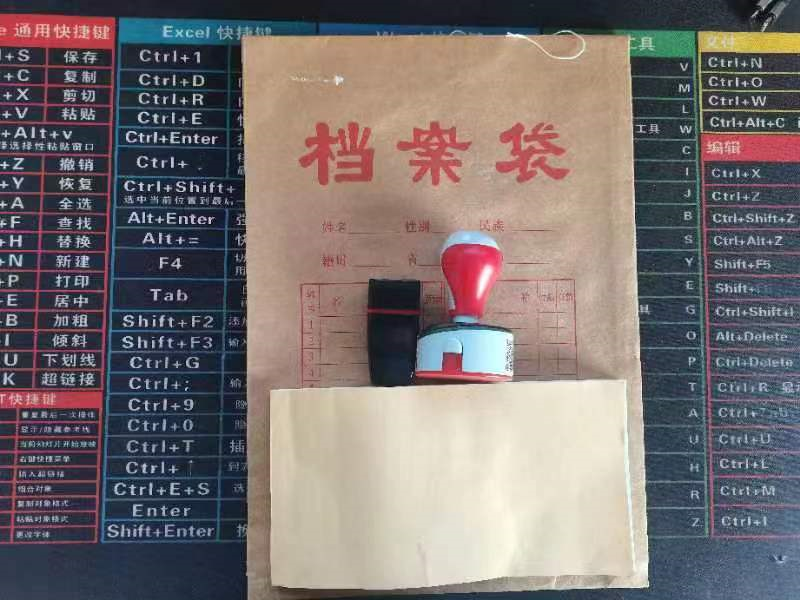 e 通用快捷键
l+S 保存
+C 复制
+X 剪切
+V 粘贴
+Alt+v
择选择性粘贴窗口
+Z 撤销
+Y 恢复
+A 全选
+F 查找
+H 替换
+N 新建
+P 打印
+E 居中
+B 加粗
+I 倾斜
U 下划线
K 超链接
T快捷键
重复最后一次操作
显示/隐藏参考线
右键快捷菜单
插入超链接
组合对象
复制对象格式
粘贴对象格式
更改字体
Excel 快捷键
Ctrl+1
Ctrl+D
Ctrl+R
Ctrl+E
Ctrl+Enter
Ctrl+
Ctrl+Shift+
选中当前位置到最后
Alt+Enter
Alt+=
F4
Tab
Shift+F2
Shift+F3
Ctrl+G
Ctrl+;
Ctrl+9
Ctrl+0
Ctrl+T 插
Ctrl+
Ctrl+E+S
Enter
Shift+Enter
档案袋
姓名 性别 民族
籍贯
1
2
3
工具
V
M
L
工具 W
C
I
J
B
S
Y
E
G
O
P
T
A
U
H
R
Z
文件
Ctrl+N
Ctrl+O
Ctrl+W
Ctrl+Alt+C
编辑
Ctrl+X
Ctrl+Z
Ctrl+Shift+Z
Ctrl+Alt+Z
Shift+F5
Shift+
Ctrl+Shift+I
Alt+Delete
Ctrl+Delete
Ctrl+R
Ctrl+U
Ctrl+L
Ctrl+M
Ctrl+I